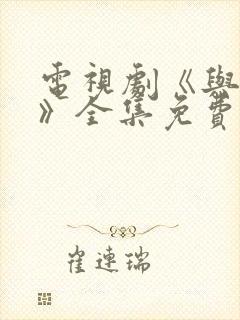 電視劇《與
》全集免費
崔連瑞